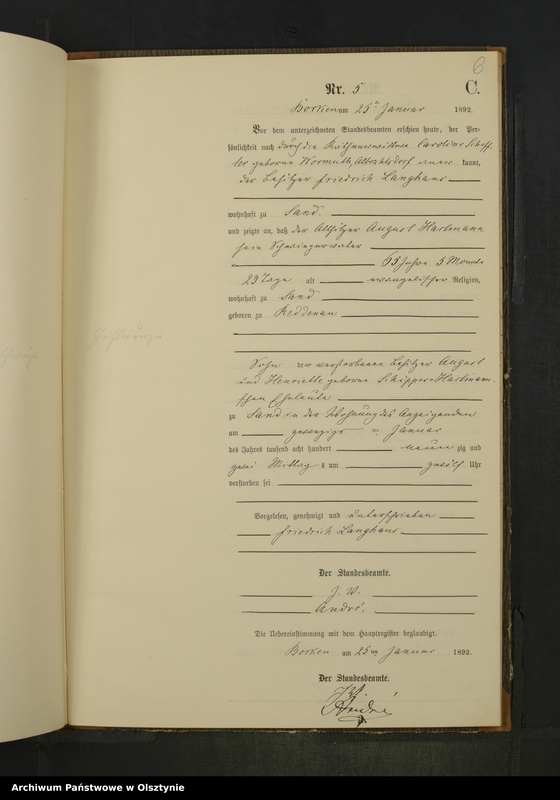 6
Nr. 5
C.
Borken am 25ten Januar 1892.
Vor dem unterzeichneten Standesbeamten erschien heute, der Per-
sönlichkeit nach durch die Käthnerwittwe Caroline Scheff-
ler geborene Wormuth, Albrechtsdorf kannt,
der Besitzer Friedrich Langhans
wohnhaft zu Sand
und zeigte an, daß der Altsitzer August Hartmann
sein Schwiegervater
65 Jahre 5 Monate
23 Tage alt evangelischer Religion,
wohnhaft zu Sand
geboren zu Reddenau
Sohn der verstorbenen Besitzer August
und Henriette geborene Hartmann-
schen Eheleute
zu Sand in der Wohnung des Anzeigenden
am Januar
des Jahres tausend acht hundert neun zig und
zwei Mittag s um zwölf Uhr
verstorben sei
Vorgelesen, genehmigt und unterschrieben
Friedrich Langhans
Der Standesbeamte.
J. V.
André.
Die Uebereinstimmung mit dem Hauptregister beglaubigt.
Borken am 25ten Januar 1892.
Der Standesbeamte.
J. V.
André
Archiwum Państwowe w Olsztynie